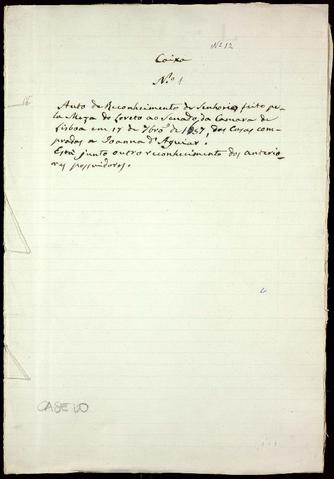 Nº 12
Caixa
N.º 1
Auto de Reconhecimento de Senhorio, feito pe-
la Meza do Loreto ao Senado da Camara de
Lisboa em 17 de 7br.º de 1657, das Casas com-
pradas a Joanna d'Aguiar.
Está junto outro reconhecimento dos anterio-
res possuidores.